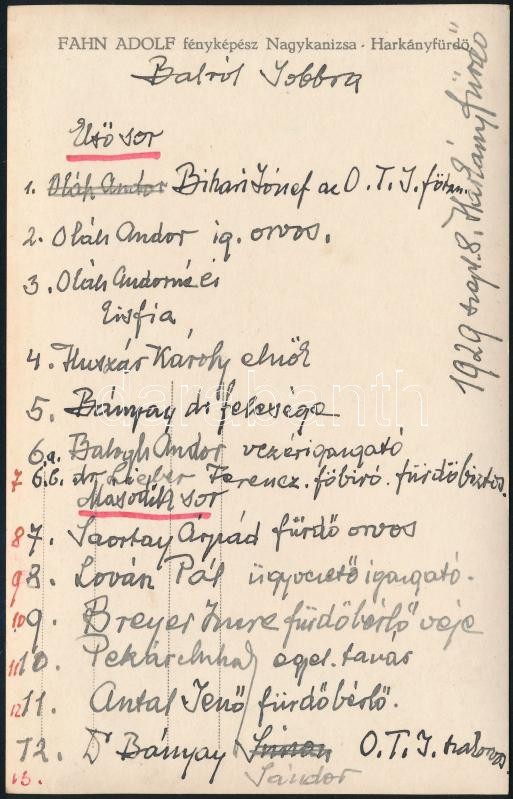 FAHN ADOLF fényképész Nagykanizsa - Harkányfürdő
Balról Jobbra
1929 szept. 8. Harkányfürdő
Első sor
1. Oláh Andor Bihari József az O.T.I. főtan.
2. Oláh Andor ig. orvos.
3. Oláh Andorné és
kisfia
4. Huszár Károly elnök
5. Bányay dr felesége
6a. Balogh Andor vezérigazgató
7 6.b. dr. Lieber Ferencz. főbíró. fürdőbiztos.
Második sor
8 7. Árpád fürdő orvos
9 8. Lován Pál ügyvezető igazgató.
10 9. Breyer Imre fürdőbérlő veje
11 10. Pekár Mihály eget. tanár
12 11. Antal Jenő fürdőbérlő.
12. Dr Bányay O.T.I. szakorvos
13. Sándor
darabanth